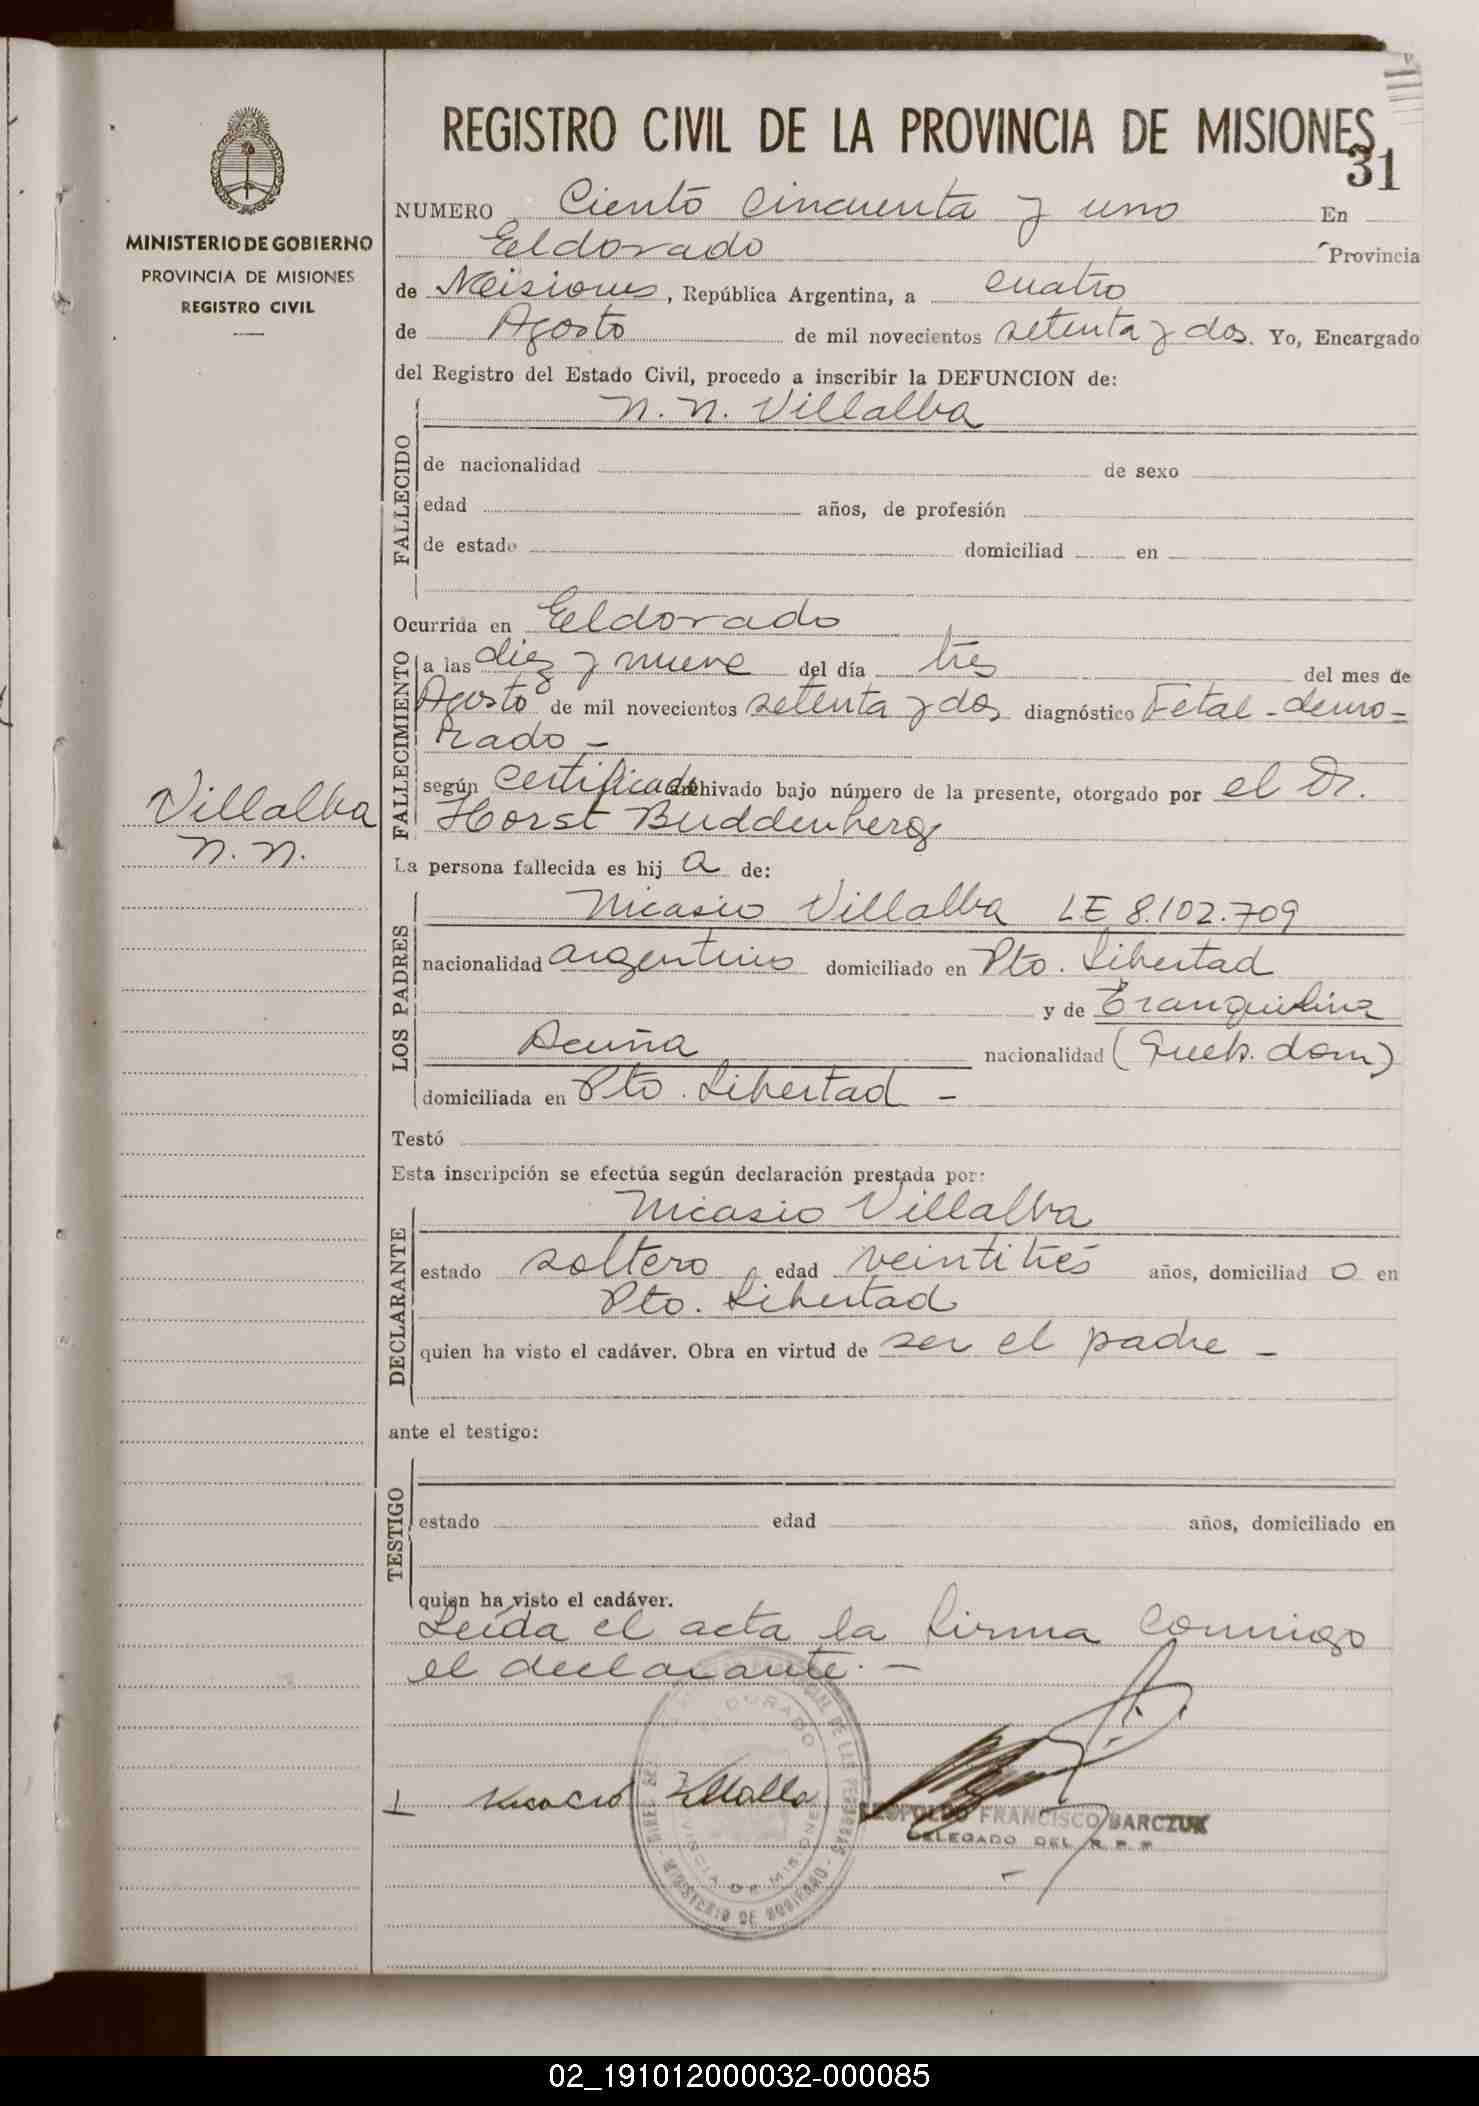 REGISTRO CIVIL DE LA PROVINCIA DE MISIONES
31
MINISTERIO DE GOBIERNO
PROVINCIA DE MISIONES
REGISTRO CIVIL
NUMERO Ciento cincuenta y uno En
Eldorado Provincia
de Misiones, República Argentina, a cuatro
de Agosto de mil novecientos setenta y dos. Yo, Encargado
del Registro del Estado Civil, procedo a inscribir la DEFUNCION de:
N. N. Villalba
FALLECIDO
de nacionalidad de sexo
edad años, de profesión
de estado domiciliad en
Ocurrida en Eldorado
FALLECIMIENTO
a las diez y nueve del día tres del mes de
Agosto de mil novecientos setenta y dos diagnóstico Fetal-demo-
rado -
según certificado archivado bajo número de la presente, otorgado por el Dr.
Horst Buddenberg
Villalba
N. N.
La persona fallecida es hij a de:
LOS PADRES
Nicasio Villalba LE 8.102.709
nacionalidad argentino domiciliado en Pto. Libertad
y de Tranquilina
Acuña nacionalidad (Queh. dom)
domiciliada en Pto. Libertad -
Testó
Esta inscripción se efectúa según declaración prestada por:
DECLARANTE
Nicasio Villalba
estado soltero edad veintitrés años, domiciliad o en
Pto. Libertad
quien ha visto el cadáver. Obra en virtud de ser el padre -
ante el testigo:
TESTIGO
estado edad años, domiciliado en
quien ha visto el cadáver.
Leída el acta la firma conmigo
el declarante. -
Nicacio Villalba
LEOPOLDO FRANCISCO BARCZUK
DELEGADO DEL R. P. P.
ELDORADO
PROVINCIA DE MISIONES
MINISTERIO DE GOBIERNO
02_191012000032-000085